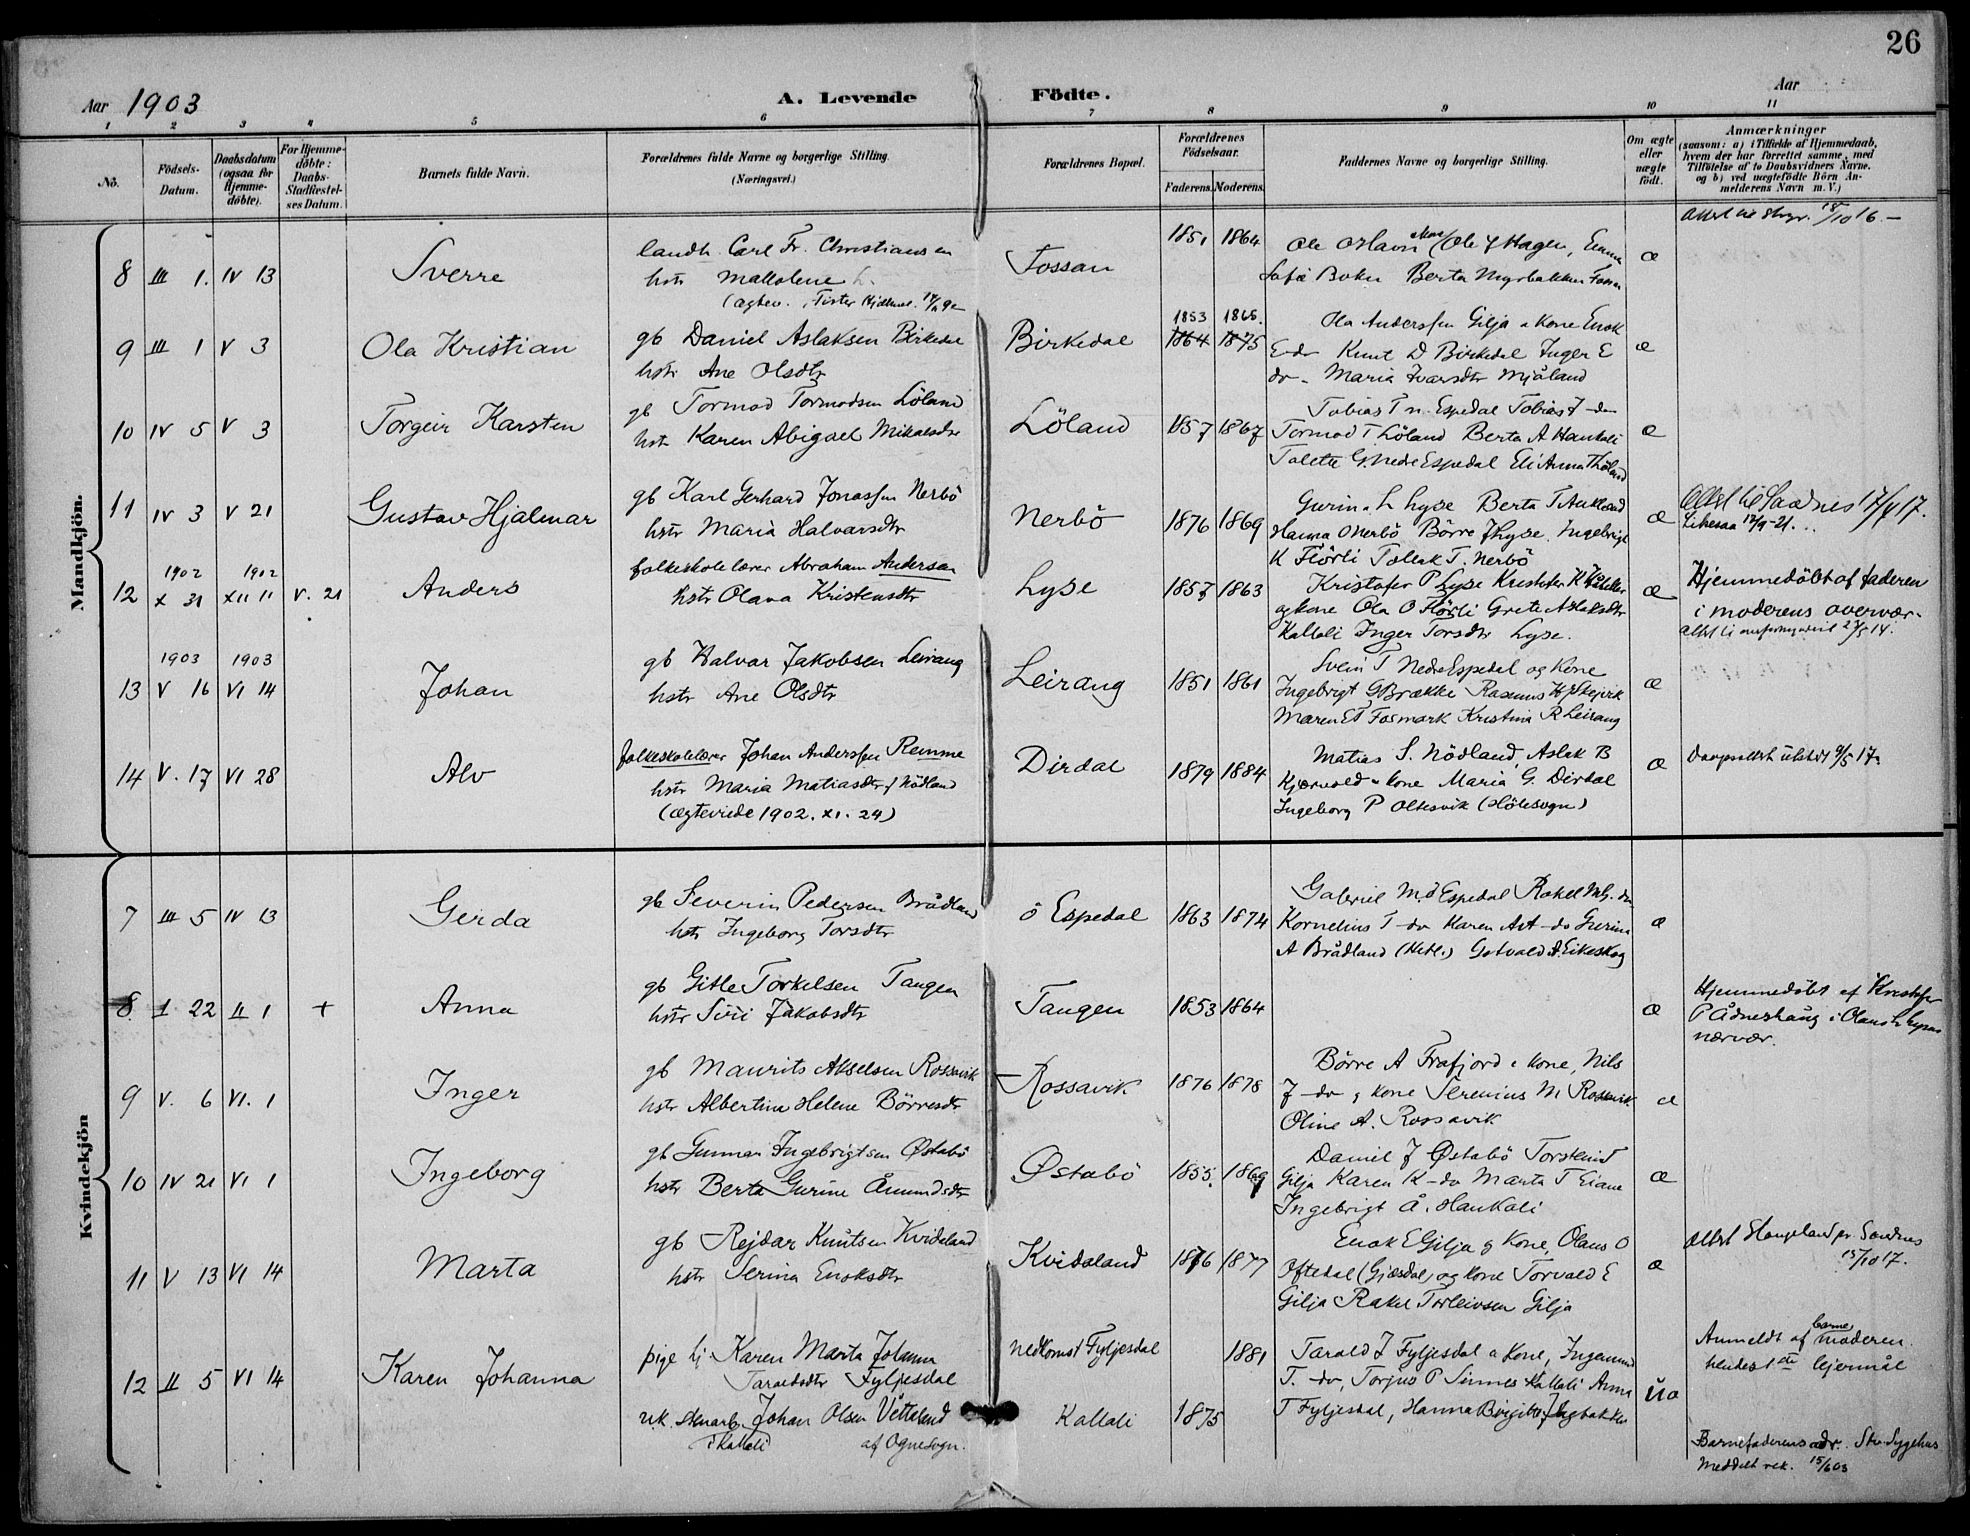 26
Aar 1903
A. Levende Födte.
Aar
1 2 3 4 5 6 7 8 9 10 11
No.
Födsels-Datum.
Daabsdatum (ogsaa for Hjemmedöbte).
For Hjemmedöbte: Daabs-Stadfæstelses Datum.
Barnets fulde Navn.
Forældrenes fulde Navne og borgerlige Stilling.
(Næringsvei.)
Forældrenes Bopæl.
Forældrenes Födselsaar.
Faderens. Moderens.
Faddernes Navne og borgerlige Stilling.
Om ægte eller uægte födt.
Anmærkninger
(saasom: a) i Tilfælde af Hjemmedaab, hvem der har forrettet samme, med Tilföielse af to Daabsvidners Navne. og b) ved uægtefödte Börn Anmelderens Navn m. V.)
Mandkjön.
8 III 1. IV 13 Sverre
landh. Carl Fr. Christiansen
hstr
Fossan 1851 1864
Berta Myrbakken
æ
18/10 16.
9 III 1 V 3 Ola Kristian
gb Daniel Aslaksen Birkedal
hstr Ane Olsdtr
Birkedal 1853 1865.
1864 1875
Ola Anderssen Gilja o kone Enok
E do Knut D Birkedal Inger E
do. Maria Ivarsdtr Mjåland
æ
10 IV 5 V 3 Torgeir Karsten
gb Tormod Tormodsen Löland
hstr Karen Abigael Mikalsdtr
Löland 1857 1867
Tobias T n. Espedal Tobias T do
Tormod T Löland Berta A Haukali
Talette G. Nedre Espedal Eli Anna T Löland
æ
11 IV 3 V 21 Gustav Hjalmar
gb Karl Gerhard Jonassen Nerbö
hstr Maria Halvarsdtr
Nerbö 1876 1869
Gurina L Lyse Berta T Aukland
Hanna O Nerbö Börre J Lyse. Ingebrigt
K Flörli Tollak T. Nerbö
æ
Attest til Sandnes 17/4 17.
12 1902 X 31 1902 XII 11 V. 21 Anders
folkeskolelærer Abraham Andersen
hstr Olava Kristensdtr
Lyse 1857 1863
Kristofer P Lyse Kristofer K
og kone Ola O Flörli Grete Aslaksdtr
Kallali Inger Torsdtr Lyse.
æ
Hjemmedöbt af faderen
i moderens overvær.
13 1903 V 16 1903 VI 14 Johan
gb Halvar Jakobsen Leirang
hstr Ane Olsdtr
Leirang 1851 1861
Svein T Nedre Espedal og kone
Ingebrigt G Brække Rasmus H Skejvik
Maren E T Fosmark Kristina R Leirang
æ
14 V. 17 VI 28 Alv
folkeskolelærer Johan Anderssen Remme
hstr Maria Matiasdtr f Nödland
(ægteviede 1902. XI. 24)
Dirdal 1879 1884
Matias S. Nödland, Aslak B
Kjærvold o kone Maria G. Dirdal
Ingeborg P Oltesvik (Hölesogn)
æ
Daapsattest utstedt 9/5 17.
Kvindekjön
7 III 5 IV 13 Gerda
gb Severin Pedersen Brådland
hstr Ingeborg Torsdtr
ö Espedal 1863 1874
Gabriel M. ö Espedal Rakel do
Kornelius T do Karen do Gurina
A Brådland (Hetl.) Gotvald A. Eikeskog
æ
8 I 22 II 1 + Anna
gb Gitle Torkelsen Tangen
hstr Siri Jakobsdtr
Tangen 1853 1864
æ
Hjemmedöbt af Kristofer
P Ådneshaug i Olaus
nærvær.
9 V. 6 VI. 1 Inger
gb Maurits Akselsen Rossavik
hstr Albertina Helene Börresdtr
Rossavik 1876 1878
Börre A Frafjord o kone, Nils
J do g kone Serenius M Rossavik
Oline A. Rossavik
æ
10 IV 21 VI 1 Ingeborg
gb Gunnar Ingebrigtsen Østabö
hstr Berta Gurine Åmundsdtr
Østabö 1855. 1869
Daniel J Østabö Torstein T
Gilja Karen K do Marta T Eiane
Ingebrigt Å. Haukali
æ
11 V 13 VI 14 Marta
gb Rejdar Knutsen Kvidaland
hstr Serina Enoksdtr
Kvidaland 1876 1877
Enok E Gilja g kone, Olaus O
Oftedal (Gjesdal) og kone Torvald E
Gilja Rakel Torleivsen Gilja
æ
Attest Haugeland pr. Sandnes
15/10 17.
12 II 5 VI 14 Karen Johanna
pige Karen Marta Johanna
Taraldsdtr Fyljesdal
u.k. stenarb. Johan Olsen Vetteland
i Kallali af Ognesogn.
nedkomst Fyljesdal 1881
Kallali 1875
Tarald J Fyljesdal o kone, Ingemund
T. do, Torjus P Sinnes Kallali Anna
T Fyljesdal, Hanna Birgitte
uæ
Anmeldt af barnemoderen
hendes 1ste lejermål
Barnefaderens adr. Stv. Sygehus
Meddelt 15/6 03